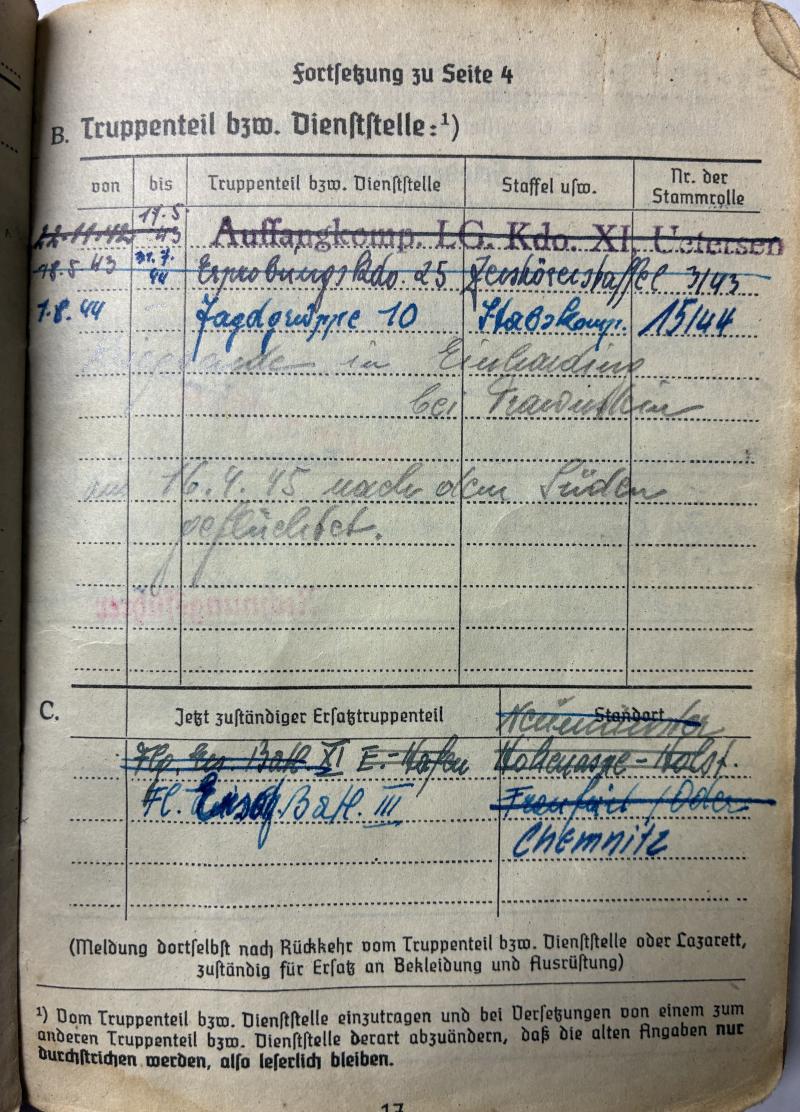 Fortsetzung zu Seite 4
B. Truppenteil bzw. Dienststelle:¹)
von bis Truppenteil bzw. Dienststelle Staffel usw. Nr. der Stammrolle
22.11.42 17.5. 43 Auffangkomp. LG. Kdo. XI, Uetersen
18.5 43 31.7. 44 Erprobungskdo. 25 Zerstörerstaffel 3/43
1.8.44 Jagdgruppe 10 Stabskomp. 15/44
in
bei
am 16.4.45 nach dem Süden
geflüchtet.
C. Jetzt zuständiger Ersatztruppenteil Standort
Neumünster
Flg. Ers. Batl. XI E.-Hafen Hohenaspe-Holst.
Fl. Ersatz. Batl. III Frankfurt / Oder
Chemnitz
(Meldung dortselbst nach Rückkehr vom Truppenteil bzw. Dienststelle oder Lazarett,
zuständig für Ersatz an Bekleidung und Ausrüstung)
¹) Vom Truppenteil bzw. Dienststelle einzutragen und bei Versetzungen von einem zum
anderen Truppenteil bzw. Dienststelle derart abzuändern, daß die alten Angaben nur
durchstrichen werden, also leserlich bleiben.
17